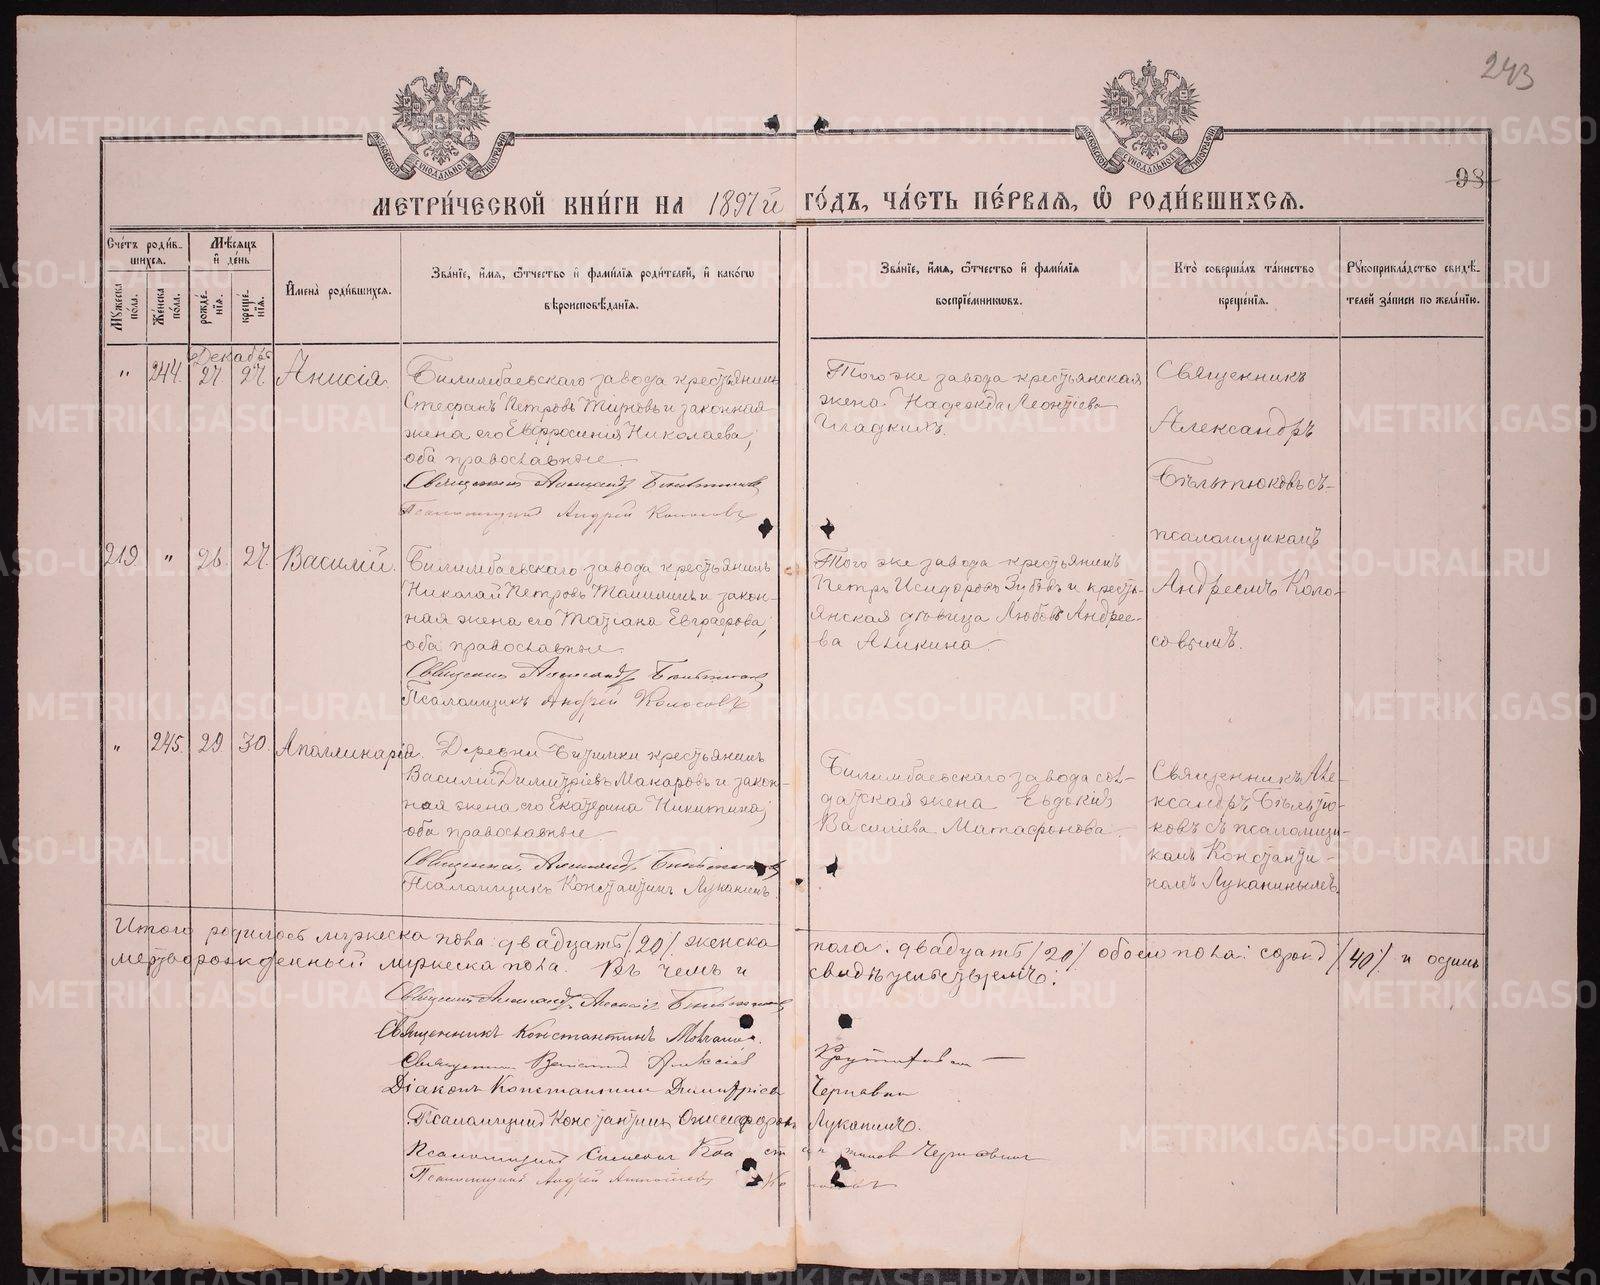 243
98
МЕТРИ́ЧЕСКОЙ КНИ́ГИ НА 1897й ГО́ДЪ, ЧА́СТЬ ПЕ́РВАЯ, Ѡ РОДИ́ВШИХСЯ.
Сче́тъ роди́вшихся.
Му́жеска по́ла.
Же́нска по́ла.
Мѣ́сяцъ и́ де́нь
рожде́нїя.
креще́нїя.
И҆мена̀ роди́вшихся.
Зва́нїе, и҆́мя, ѻ҆́тчество и҆ фами́лїя роди́телей, и҆ како́гѡ
вѣроисповѣ́данїя.
Зва́нїе, и҆́мя, ѻ҆́тчество и҆ фами́лїя
воспрїе́мникѡвъ.
Кто̀ соверша́лъ та́инство
креще́нїя.
Рꙋкоприкла́дство свидѣ́-
телей за́писи по жела́нїю.
Декабрь
" 244. 27. 27. Анисія.
Билимбаевскаго завода крестьянинъ
Стефанъ Петровъ и законная
жена его Евфросинія Николаева,
оба православные.
Священникъ Александръ
Псаломщикъ Андрей Колосовъ
Того же завода крестьянская
жена Надежда Леонтіева
Гладкихъ.
Священникъ
Александръ
Бѣльтюковъ съ
псаломщикомъ
Андреемъ Коло-
совымъ.
219. " 26. 27. Василій.
Билимбаевскаго завода крестьянинъ
Николай Петровъ и закон-
ная жена его Татіана Евграфова,
оба православные.
Священникъ Александръ
Псаломщикъ Андрей Колосовъ
Того же завода крестьянинъ
Петръ Исидоровъ Зубовъ и кресть-
янская дѣвица Любовь Андрее-
ва Аликина.
" 245. 29. 30. Аполлинарія.
Деревни Битимки крестьянинъ
Василій Димитріевъ Макаровъ и закон-
ная жена его Екатерина Никитина,
оба православные
Священникъ Александръ
Псаломщикъ Константинъ Луканинъ.
Билимбаевскаго завода сол-
датская жена Евдокія
Василіева Матафонова.
Священникъ Але-
ксандръ Бѣльтю-
ковъ съ псаломщи-
комъ Константи-
номъ Луканинымъ.
Итого родилось мужеска пола: двадцать /20/ женска пола: двадцать /20/ обоего пола: сорокъ /40/ и одинъ
мертворожденный мужеска пола. Въ чемъ и свидѣтельствуемъ:
Священникъ Александръ
Священникъ Константинъ
Священникъ
Діаконъ Константинъ Димитріевъ
Псаломщикъ Константинъ Онисифоровъ Луканинъ.
Псаломщикъ
Псаломщикъ Андрей
METRIKI.GASO-URAL.RU